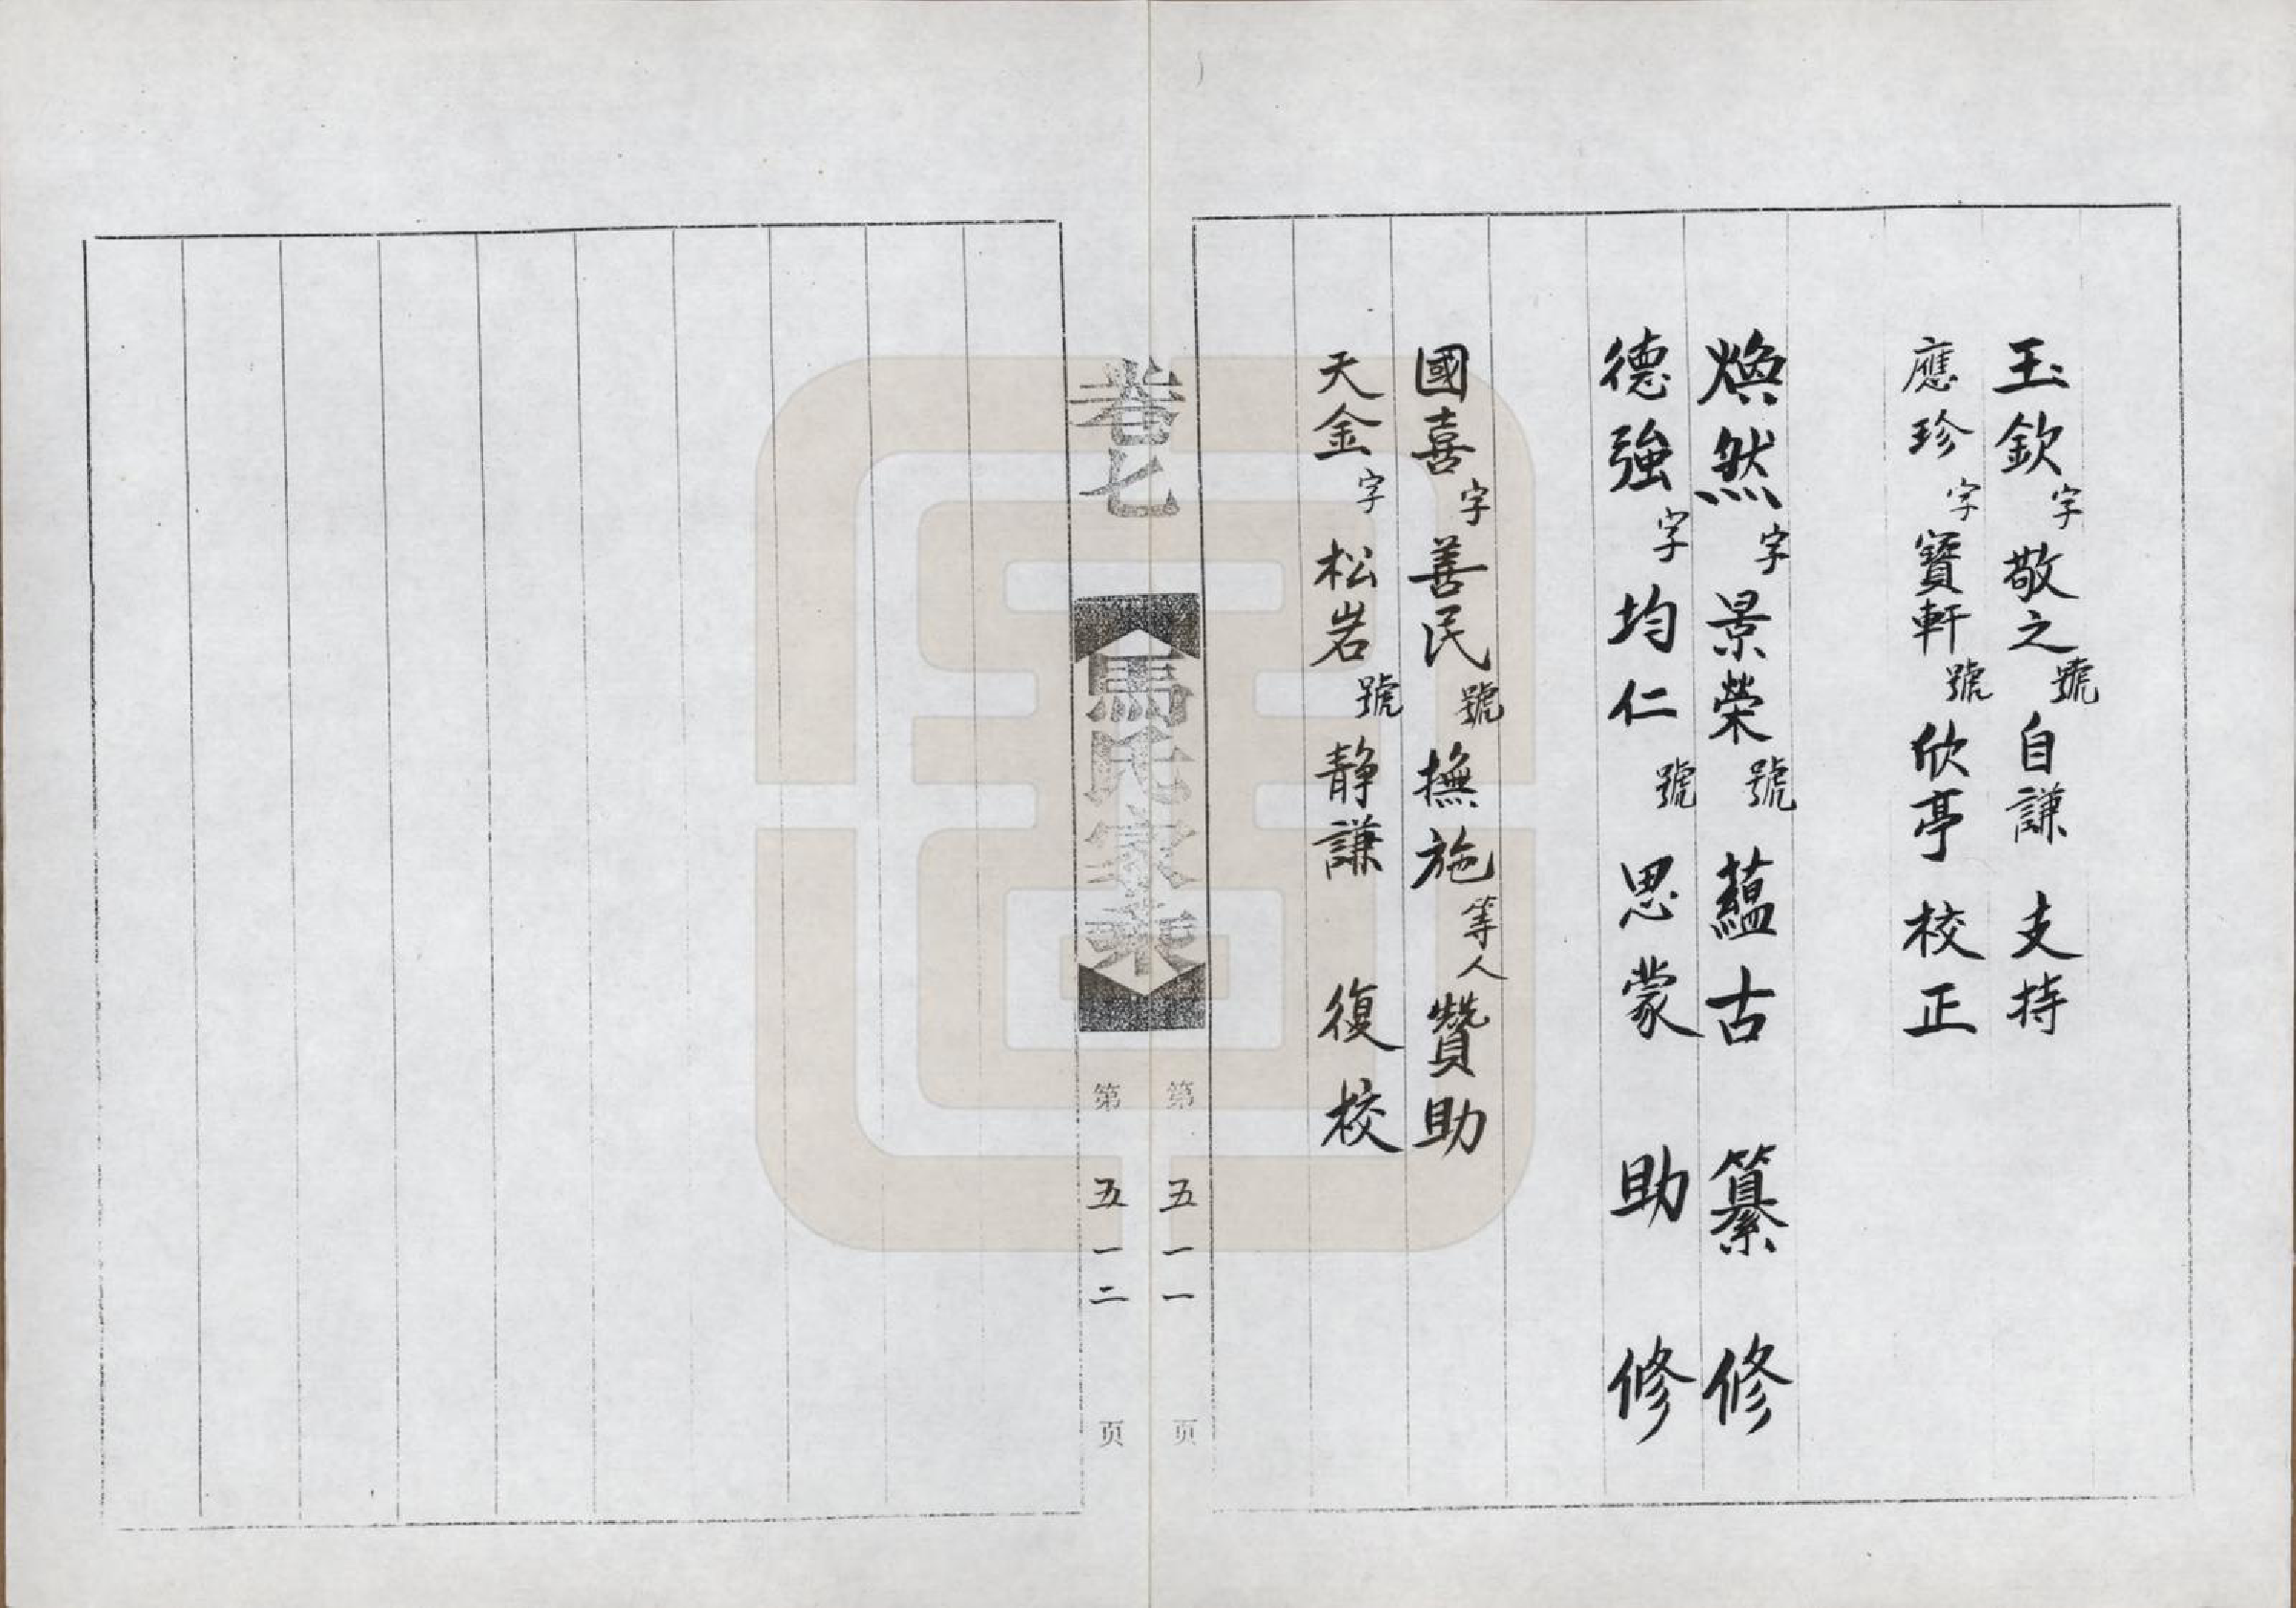 玉欽字敬之號自謙 支持
應珍字寶軒號欣亭 校正
煥然字景榮號蘊古 纂修
德強字均仁號思蒙 助修
國喜字善民號撫施等人 贊助
天金字松岩號静謙 復校
卷七
馬氏家乘
第 五一一 页
第 五一二 页